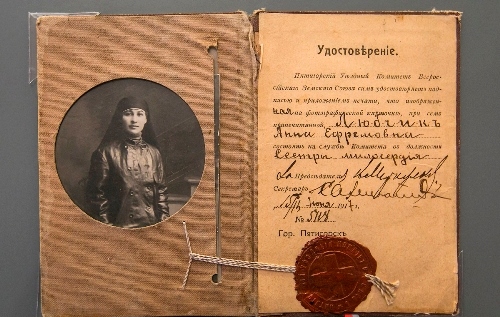 Удостовѣреніе.
Пятигорскій Уѣздный Комитетъ Всерос-
сійскаго Земскаго Союза симъ удостовѣряетъ под-
писью и приложеніемъ печати, что изображен-
ная на фотографической карточкѣ, при семъ
Любчинъ
Анна Ефремовна
состоитъ на службѣ Комитета въ должности
Сестры милосердія
Предсѣдатель
Секретарь
іюня 1917 г.
№
Гор. Пятигорскъ